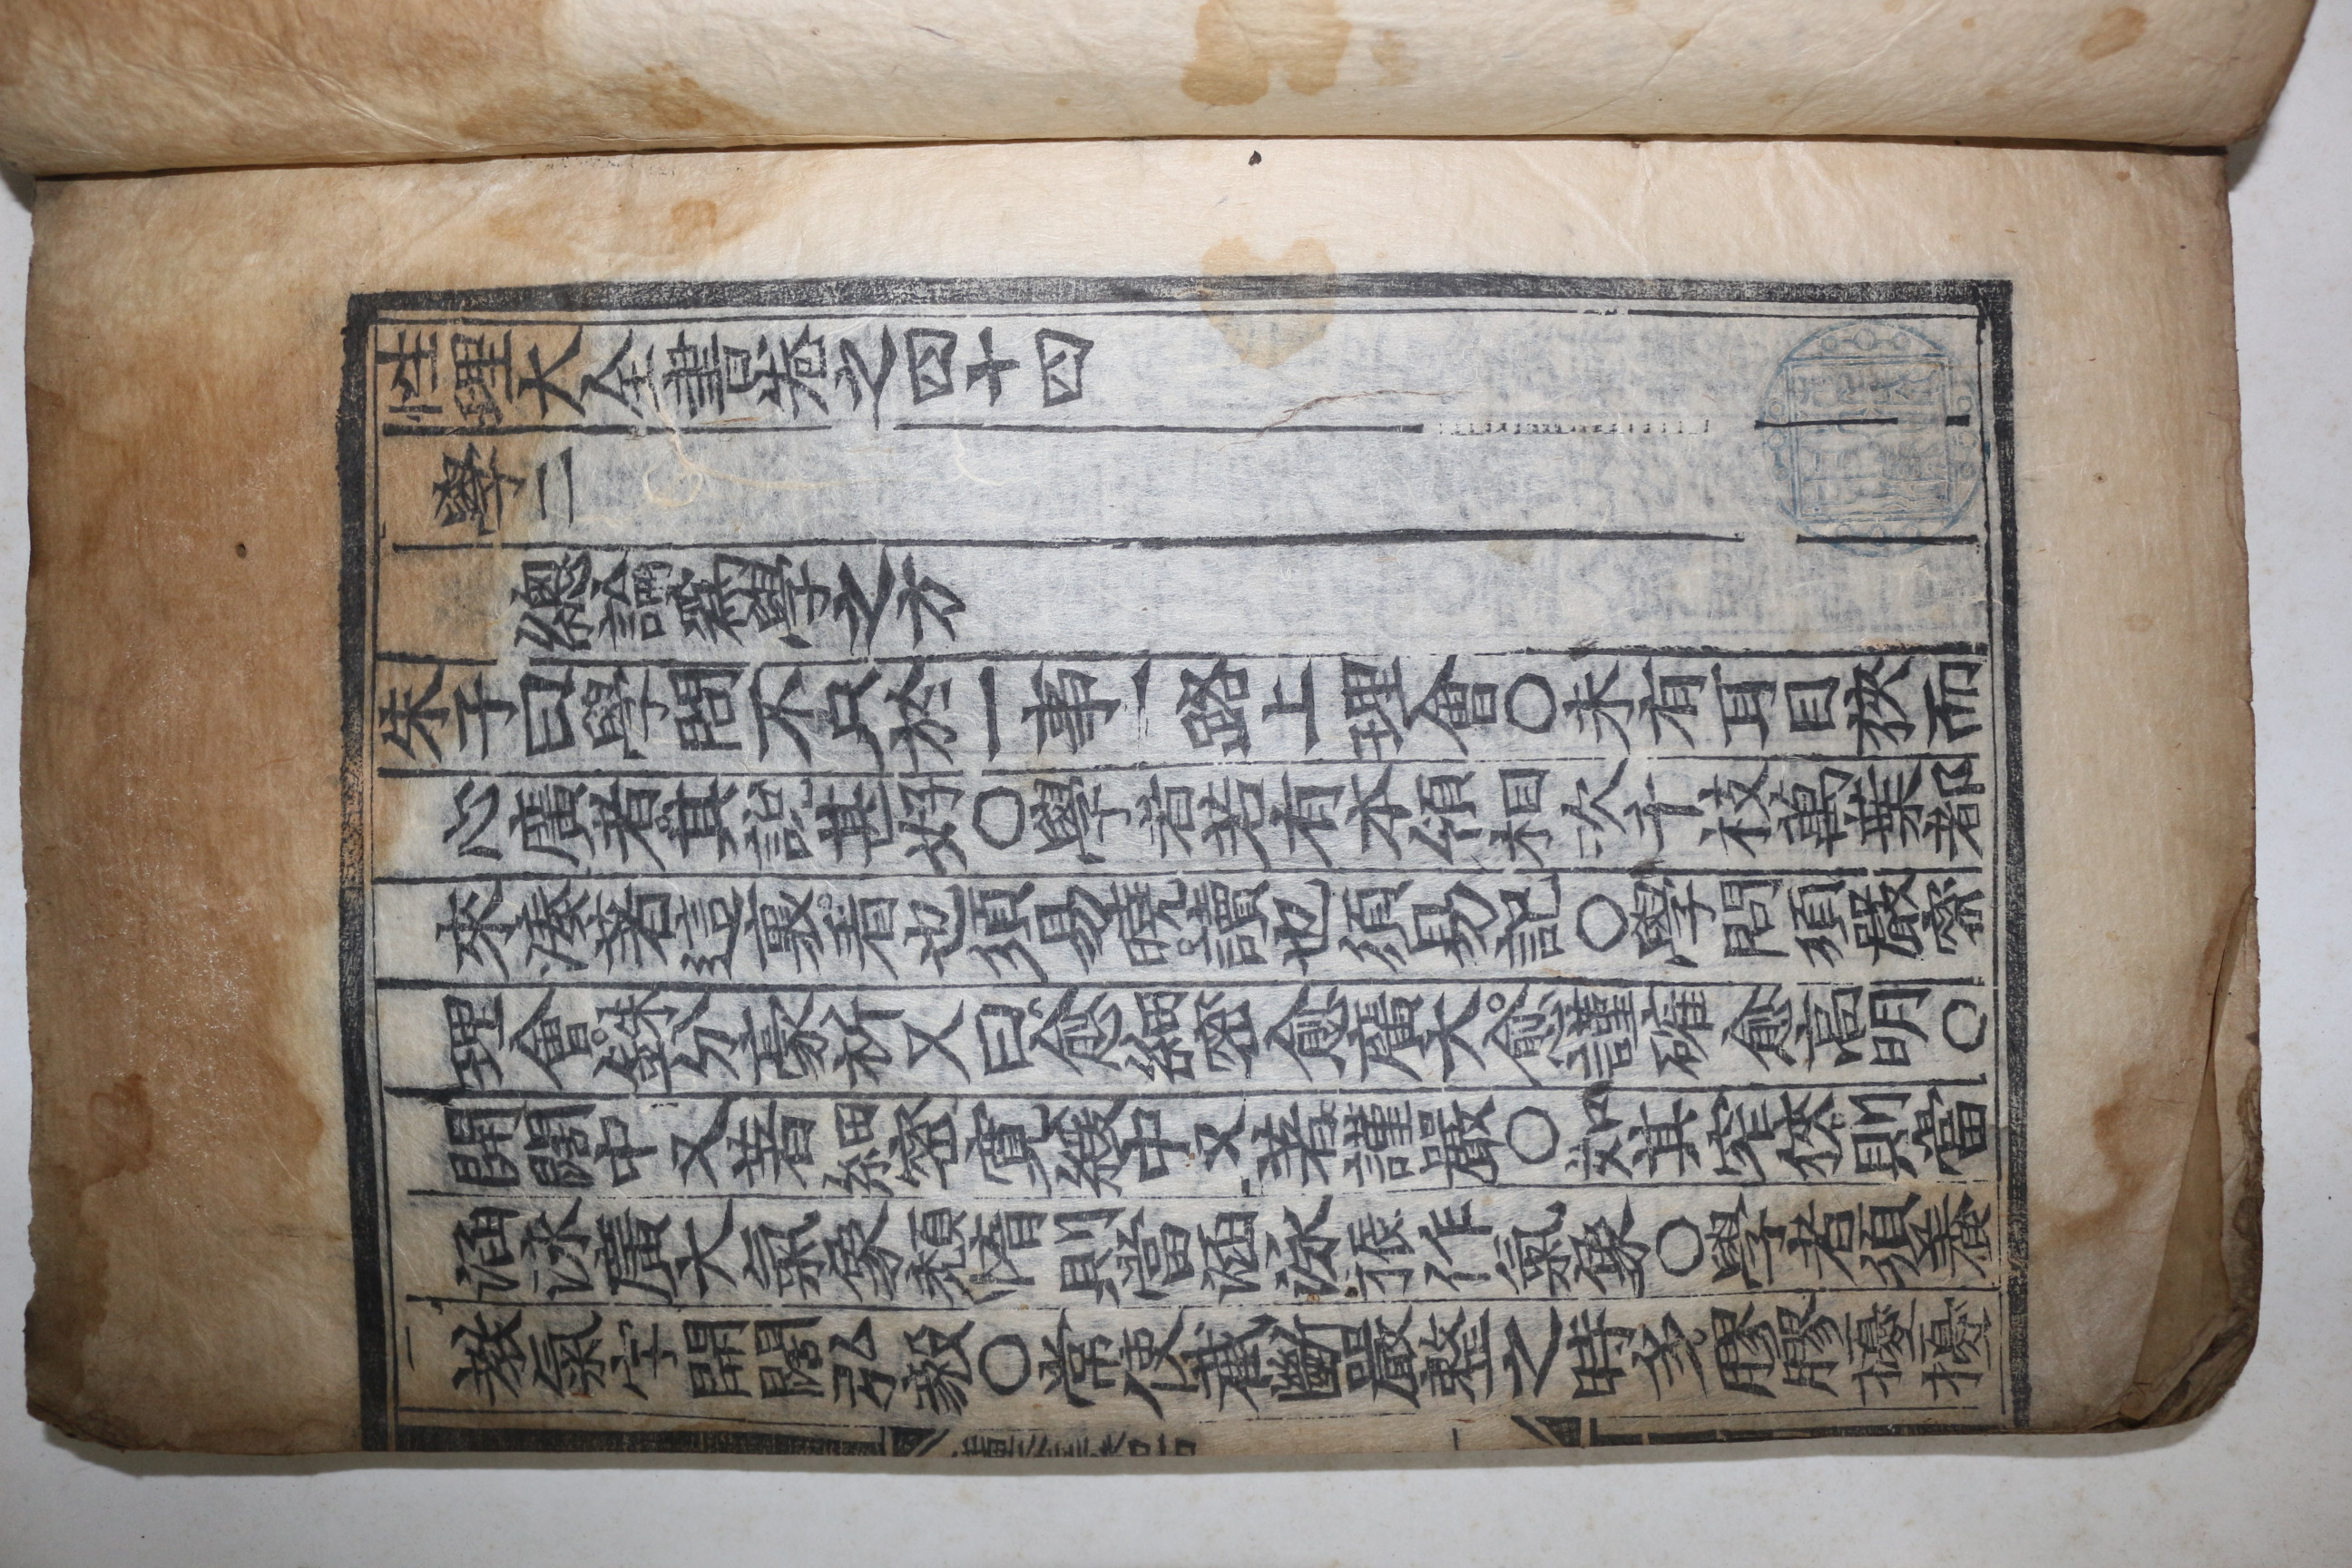 性理大全書卷之四十四
學二
總論爲學之方
朱子曰學問不只於一事一路上理會○未有耳目狹而
心廣者其說甚好○學者若有本領相次千枝萬葉都
來湊著這裏看也須易曉讀也須易記○學問須嚴密
理會銖分豪析又曰愈細密愈廣大愈謹確愈高明○
開闊中又著細密寬緩中又著謹嚴○如其窄狹則當
涵泳廣大氣象頹惰則當涵泳振作氣象○學者須養
教氣宇開闊弘毅○常使截斷嚴整之時多膠膠擾擾